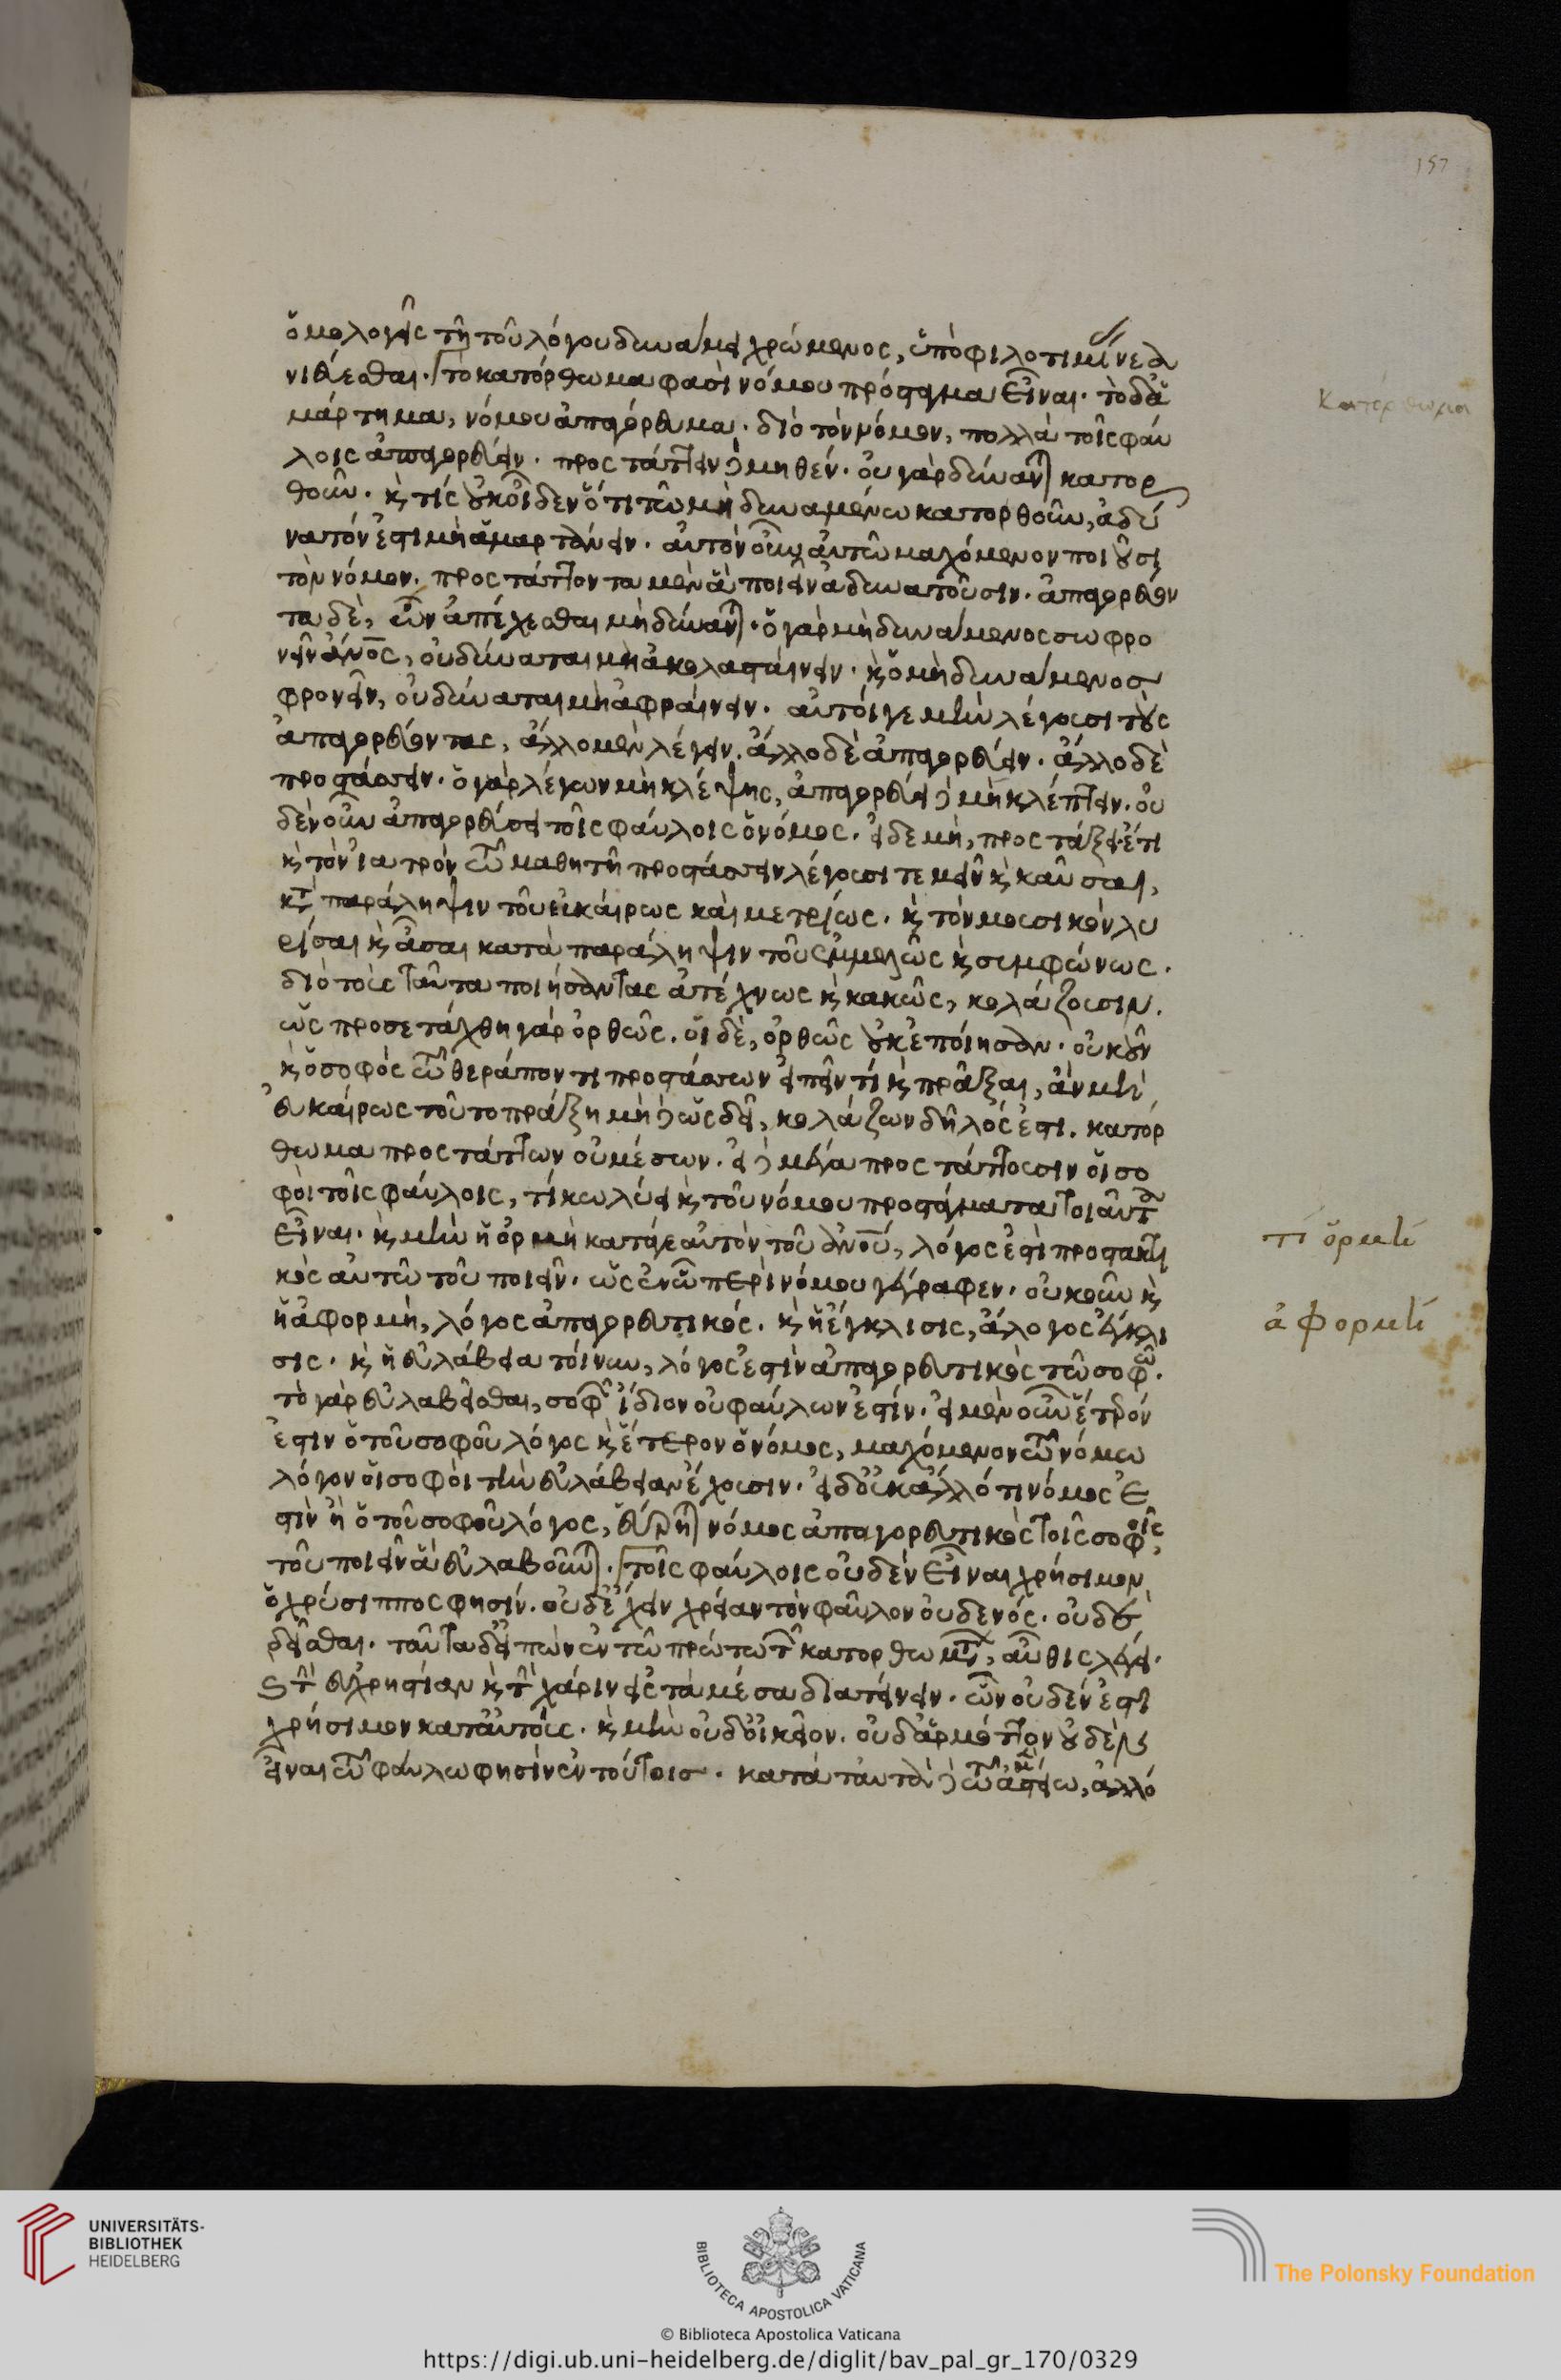 157
ὁμολογεῖς τῇ τοῦ λόγου δυνάμει χρώμενος, ὑπὸ φιλοτιμίας νεα
νιεύεσθαι. τὸ κατόρθωμα φασὶ νόμου πρόσταγμα εἶναι. τὸ δ' ἁ
μάρτημα, νόμου ἀπαγόρευμα. διὸ τὸν νόμον, πολλὰ τοῖς φαύ
λοις ἀπαγορεύειν. προστάττειν δὲ μηθέν. οὐ γὰρ δύνανται κατορ
θοῦν. καὶ τίς οὐκ οἶδεν ὅτι τῷ μὴ δυναμένῳ κατορθοῦν, ἀδύ
νατόν ἐστι μὴ ἁμαρτάνειν. αὐτὸν οὖν αὑτῷ μαχόμενον ποιοῦσι
τὸν νόμον. προστάττοντα μὲν ἃ ποιεῖν ἀδυνατοῦσιν. ἀπαγορεύον
τα δὲ, ὧν ἀπέχεσθαι μὴ δύνανται. ὁ γὰρ μὴ δυνάμενος σωφρο
νεῖν ἄνος, οὐ δύναται μὴ ἀκολασταίνειν. καὶ ὁ μὴ δυνάμενος
φρονεῖν, οὐ δύναται μὴ ἀφραίνειν. αὐτοί γε μὴν λέγουσι τοὺς
ἀπαγορεύοντας, ἄλλο μὲν λέγειν. ἄλλο δὲ ἀπαγορεύειν. ἄλλο δὲ
προστάσσειν. ὁ γὰρ λέγων μὴ κλέψῃς, ἀπαγορεύει δὲ μὴ κλέπτειν. οὐ
δὲν οὖν ἀπαγορεύσει τοῖς φαύλοις ὁ νόμος. εἰ δὲ μὴ, προστάξει. ἔτι
καὶ τὸν ἰατρὸν τῷ μαθητῇ προστάσσειν λέγουσι τεμεῖν καὶ καῦσαι,
κατὰ παράληψιν τοῦ εὐκαίρως καὶ μετρίως. καὶ τὸν μουσικὸν λυ
ρίσαι καὶ ᾆσαι κατὰ παράληψιν τοῦ ἐμμελῶς καὶ συμφώνως.
διὸ τοὺς ταῦτα ποιήσαντας ἀτέχνως καὶ κακῶς, κολάζουσιν.
ὡς προσετάχθη γὰρ ὀρθῶς. οἱ δὲ, ὀρθῶς οὐκ ἐποίησαν. οὐκοῦν
καὶ ὁ σοφὸς τῷ θεράποντι προστάσσων εἰπεῖν τί καὶ πρᾶξαι, ἂν μὴ
εὐκαίρως τοῦτο πράξῃ μὴ δὲ ὡς δεῖ, κολάζων δῆλός ἐστι. κατόρ
θωμα προστάττων οὐ μέσων. εἰ δὲ μέσα προστάττουσιν οἱ σο
φοὶ τοῖς φαύλοις, τί κωλύει καὶ τοῦ νόμου προστάγματα τοιαῦτα
εἶναι. καὶ μὴν ἡ ὁρμὴ κατά γε αὐτὸν τοῦ ἀνου, λόγος ἐστὶ προστακτι
κὸς αὐτῷ τοῦ ποιεῖν. ὡς ἐν τῷ περὶ νόμου γέγραφεν. οὐκοῦν καὶ
ἡ ἀφορμὴ, λόγος ἀπαγορευτικός. καὶ ἡ ἔγκλισις, ἄλογος ἔκκλι
σις. καὶ ἡ εὐλάβεια τοίνυν, λόγος ἐστὶν ἀπαγορευτικὸς τῷ σοφῷ.
τὸ γὰρ εὐλαβεῖσθαι, σοφῶν ἴδιον οὐ φαύλων ἐστίν. εἰ μὲν οὖν ἕτερόν
ἐστιν ὁ τοῦ σοφοῦ λόγος καὶ ἕτερον ὁ νόμος, μαχόμενον τῷ νόμῳ
λόγον οἱ σοφοὶ τὴν εὐλάβειαν ἔχουσιν. εἰ δ' οὐκ ἄλλό τι νόμος ἐ
στὶν ἢ ὁ τοῦ σοφοῦ λόγος, εὕρηται νόμος ἀπαγορευτικὸς τοῖς σοφοῖς
τοῦ ποιεῖν ἃ εὐλαβοῦνται. τοῖς φαύλοις οὐδὲν εἶναι χρήσιμον
ὁ χρύσιππος φησίν. οὐδὲ ἔχειν χρείαν τὸν φαῦλον οὐδενός. οὐδὲ
δεῖσθαι. ταῦτα δ' εἰπὼν ἐν τῷ πρώτῳ τῶν κατορθωμάτων, αὖθις λέγει.
καὶ τὴν εὐχρηστίαν καὶ τὴν χάριν εἰς τὰ μέσα διατείνειν. ὧν οὐδὲν ἐστὶ
χρήσιμον κατ' αὐτούς. καὶ μὴν οὐδ' οἰκεῖον. οὐδ' ἁρμόττον οὐδὲν
εἶναι τῷ φαύλῳ φησὶν ἐν τούτοις. κατὰ ταὐτὰ δὲ τῷ μὲν ἀστείῳ, ἀλλό
Κατόρθωμα
τί ὁρμή
ἀφορμή
UNIVERSITÄTS-
BIBLIOTHEK
HEIDELBERG
BIBLIOTECA APOSTOLICA VATICANA
The Polonsky Foundation
© Biblioteca Apostolica Vaticana
https://digi.ub.uni-heidelberg.de/diglit/bav_pal_gr_170/0329